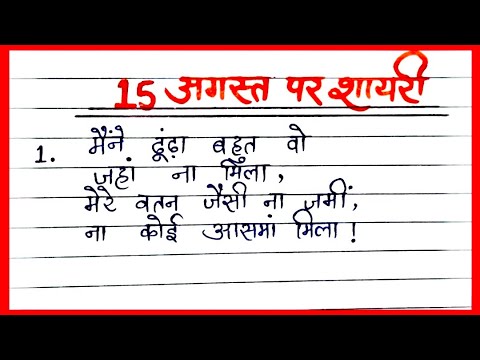 15 अगस्त पर शायरी
1. मैंने ढूंढ़ा बहुत वो
जहां ना मिला,
मेरे वतन जैसी ना ज़मीं,
ना कोई आसमां मिला!